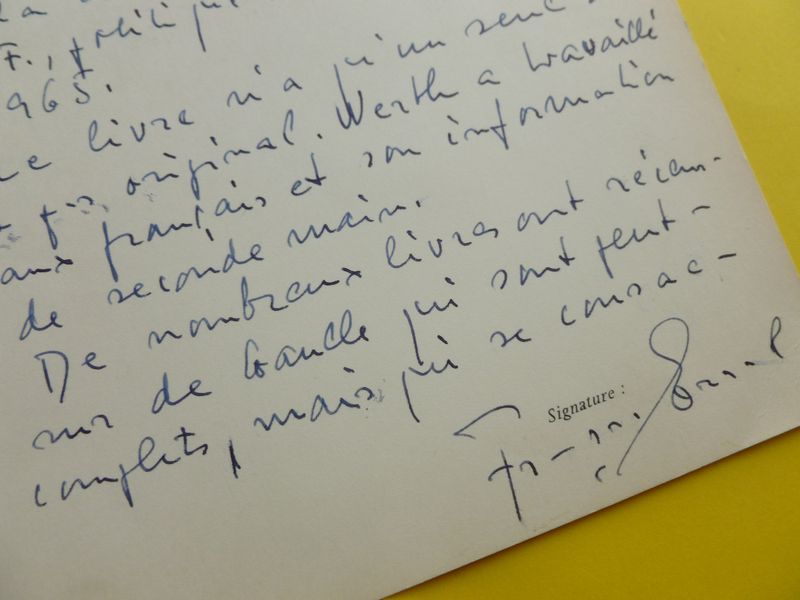 F.,
1965.
livre n'a qu'un seul
original. Werth a travaillé
aux français et son information
de seconde main.
De nombreux livres ont récem-
sur de Gaulle qui sont peut-
complets, mais qui se consac-
Signature :